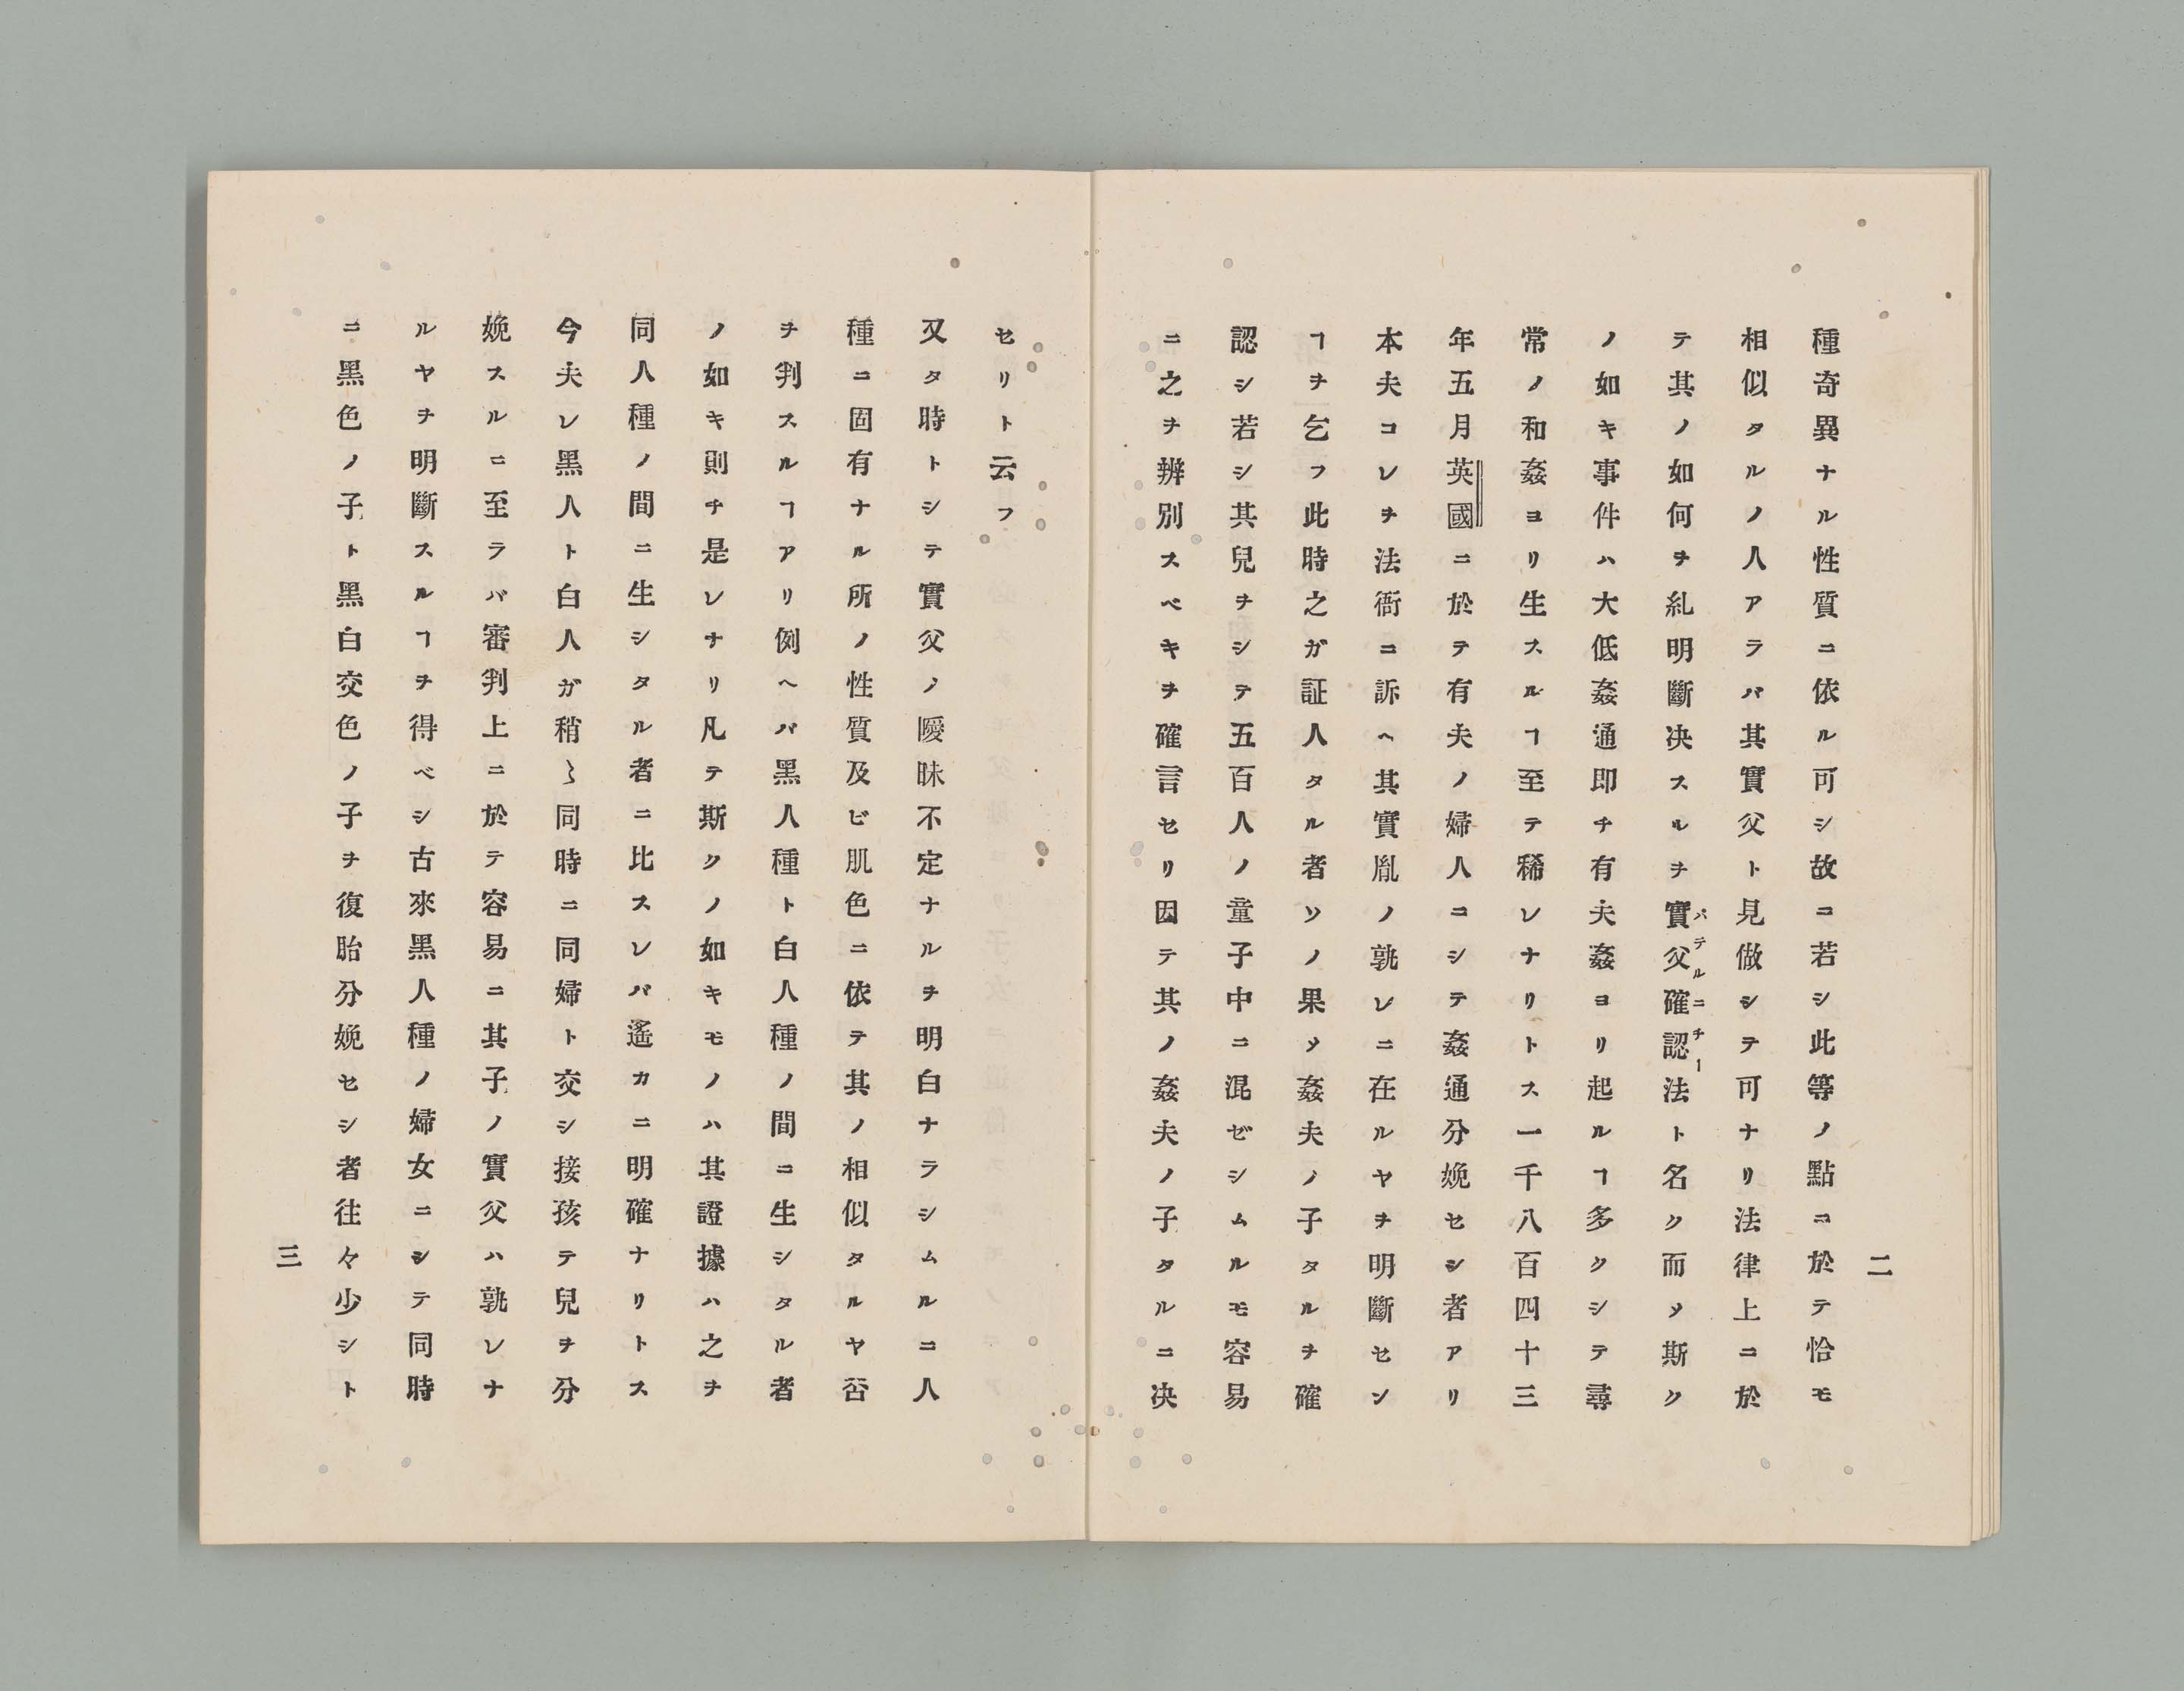 種奇異ナル性質ニ依ル可シ故ニ若シ此等ノ點ニ於テ恰モ
相似タルノ人アラバ其實父ト見做シテ可ナリ法律上ニ於
テ其ノ如何ヲ糺明斷决スルヲ實父確認法ト名ク而ソ斯ク
パテルニチー
ノ如キ事件ハ大低姦通即チ有夫姦ヨリ起ルヿ多クシテ尋
常ノ和姦ヨリ生スルヿ至テ稀レナリトス一千八百四十三
年五月英國ニ於テ有夫ノ婦人ニシテ姦通分娩セシ者アリ
本夫コレヲ法衙ニ訴ヘ其實胤ノ孰レニ在ルヤヲ明斷セン
ヿヲ乞フ此時之ガ証人タル者ソノ果ソ姦夫ノ子タルヲ確
認シ若シ其兒ヲシテ五百人ノ童子中ニ混ゼシムルモ容易
ニ之ヲ辨別スベキヲ確言セリ因テ其ノ姦夫ノ子タルニ决
二
セリト云フ
又タ時トシテ實父ノ曖昧不定ナルヲ明白ナラシムルニ人
種ニ固有ナル所ノ性質及ビ肌色ニ依テ其ノ相似タルヤ否
ヲ判スルヿアリ例ヘバ黑人種ト白人種ノ間ニ生シタル者
ノ如キ則チ是レナリ凡テ斯クノ如キモノハ其證據ハ之ヲ
同人種ノ間ニ生シタル者ニ比スレバ遙カニ明確ナリトス
今夫レ黑人ト白人ガ稍〻同時ニ同婦ト交シ接孩テ兒ヲ分
娩スルニ至ラバ審判上ニ於テ容易ニ其子ノ實父ハ孰レナ
ルヤヲ明斷スルヿヲ得ベシ古來黑人種ノ婦女ニシテ同時
ニ黑色ノ子ト黑白交色ノ子ヲ復胎分娩セシ者往々少シト
三